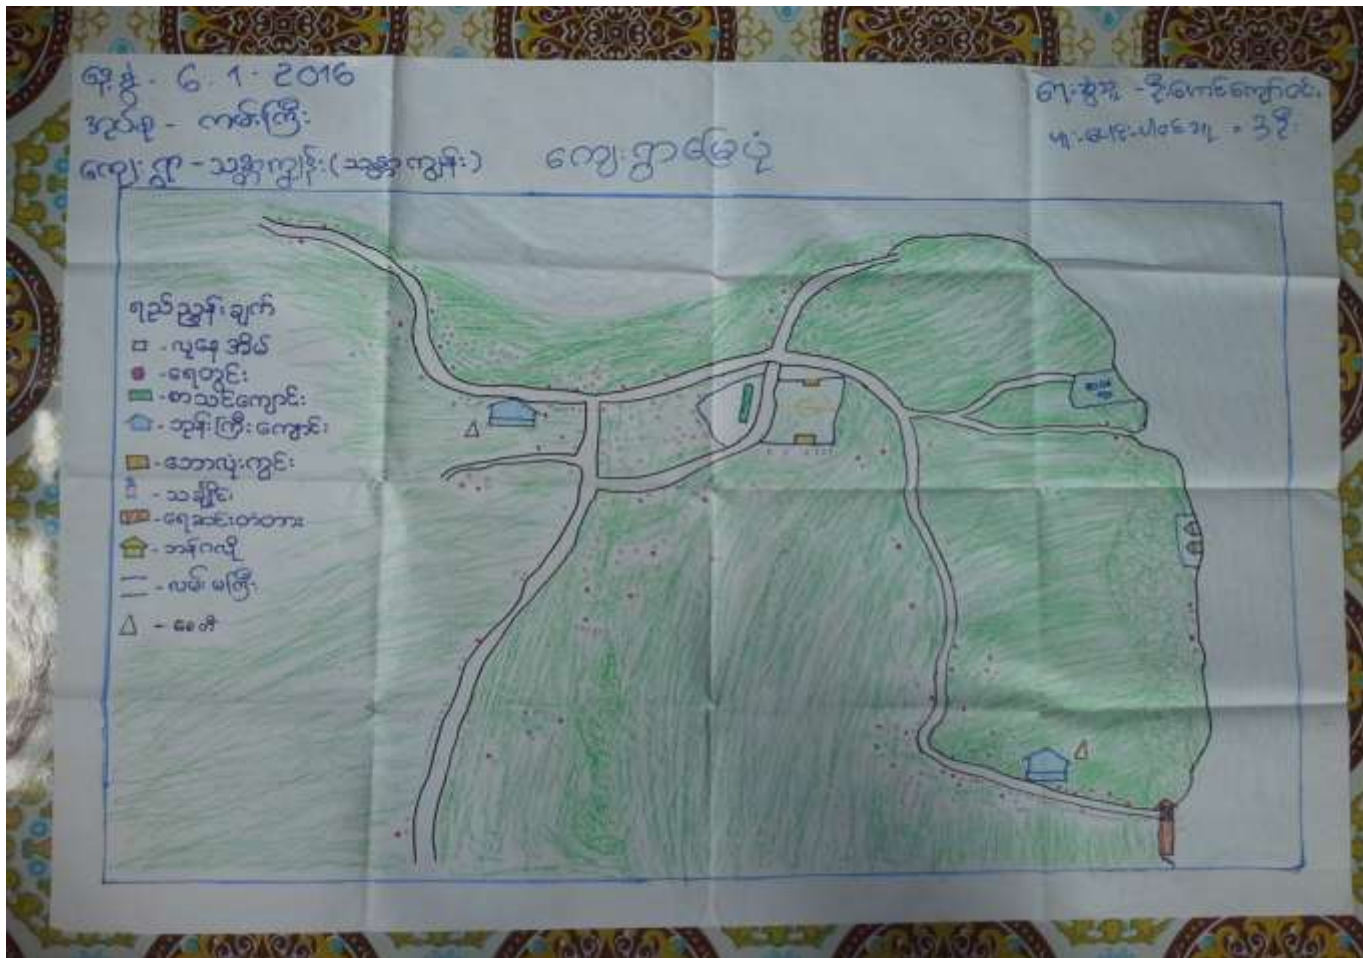 နေ့စွဲ - 6 . 1 - 2016
အုပ်စု - ကမ်းကြီး
ကျေးရွာ - သန္တာကျွန်း (သန္တာကျွန်း)
ရေးဆွဲသူ - ဦးအောင်ကျော်ဝင်း
ပူးပေါင်းပါဝင်သူ - ဒိဦး
ကျေးရွာမြေပုံ
ရည်ညွှန်းချက်
- လူနေအိမ်
- ရေတွင်း
- စာသင်ကျောင်း
- ဘုန်းကြီးကျောင်း
- ဘောလုံးကွင်း
- သချိုင်း
- ရေဆင်းတံတား
- ဘန်ဂလို
- လမ်းမကြီး
- စေတီ